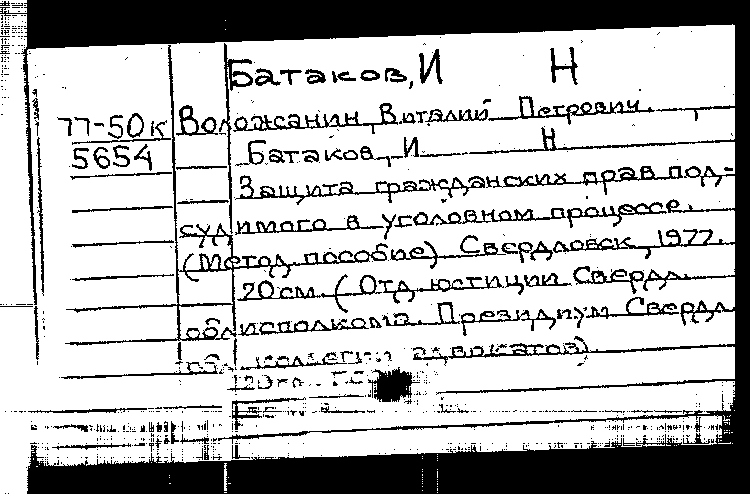 Батаков, И Н
77-50к Воложанин, Виталий Петрович.,
5654 Батаков, И Н
Защита гражданских прав под-
судимого в уголовном процессе.
(Метод. пособие) Свердловск, 1977.
20см. (Отд. юстиции Свердл.
облисполкома. Президиум Свердл.
обл. коллегии адвокатов)